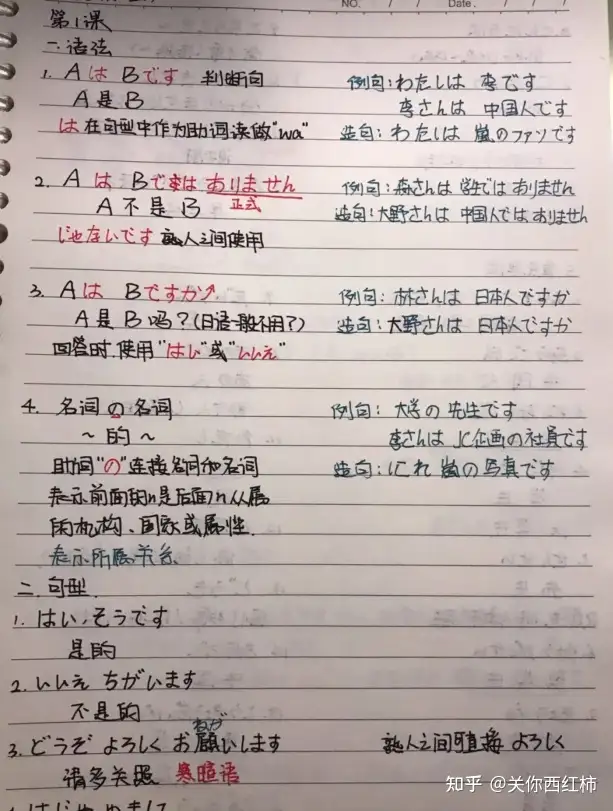 NO.
Date
第1课
一 语法
1. Aは Bです 判断句 例句：わたしは 李です
A是B 李さんは 中国人です
は在句型中作为助词读做"wa" 造句：わたしは 嵐のファンです
2. A は Bでは ありません 例句：森さんは 学生では ありません
A不是B 正式 造句：大野さんは 中国人では ありません
じゃないです 熟人之间使用
3. Aは Bですか↗ 例句：林さんは 日本人ですか
A是B吗？(日语一般不用？) 造句：大野さんは 日本人ですか
回答时使用"はい"或"いいえ"
4. 名词の名词 例句：大学の 先生です
～的～ 李さんは JC企画の社員です
助词"の"连接名词和名词 造句：これ 嵐の写真です
表示前面的n是后面n从属
的机构、国家或属性.
表示所属关系
二 句型
1. はい、そうです
是的
2. いいえ ちがいます
不是的
ねが
3. どうぞ よろしく お願いします 熟人之间直接 よろしく
请多关照 寒暄语
はじめまして
知乎 @关你西红柿